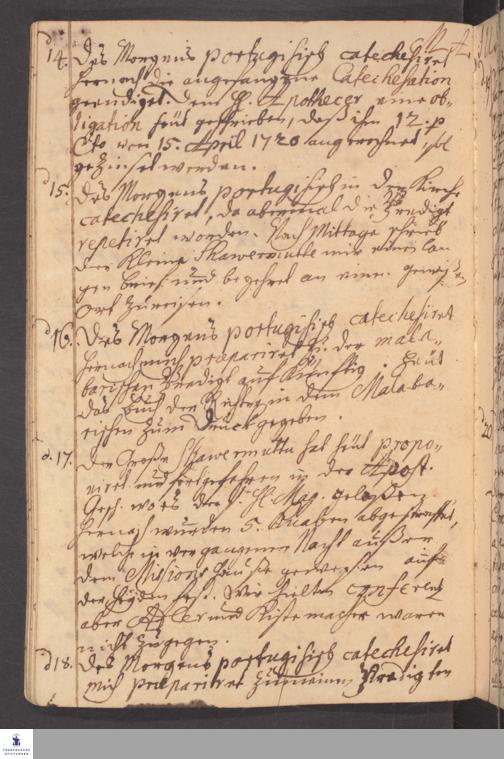 d 14. Des Morgens portugisisch catechesiret
hernach die angefangene Catechesation
geendiget. Dem H. Apothecer eine ob-
ligation heüt geschrieben, daß ihm 12. p
Cto von 15. April 1720 angerechnet, sol
gezinset werden.
d 15. Des Morgens portugisisch in der Kirche
catechesiret, da abermal die Predigt
repetiret worden. Nach Mittage schrieb
der kleine Schawerimutte mir einen lan-
gen brief und begehret an einen gewißen
ort zu reisen.
d 16. Des Morgens portugisisch catechesiret
hernach mich præpariret zu der mala-
barischen Predigt auf künftig. Heüt
das buch der Richter in dem Malaba-
rischen zum druck gegeben.
d. 17. Der Große Schawerimuttu hat heüt propo-
niret und fortgefahren in der Apost.
Gesch. wo es der H. Mag. gelaßen
hernach wurden 5. Knaben abgestraffet,
welche in vergangener Nacht außer
dem Missions Hause gewesen auf
der Heyden fest. Wir hielten conferentz
aber Adler und Kistenmacher waren
nicht zugegen.
d 18. Des Morgens portugisisch catechesiret
mich præpariret zu meinen Predigten
FRANCKESCHE
STIFTUNGEN